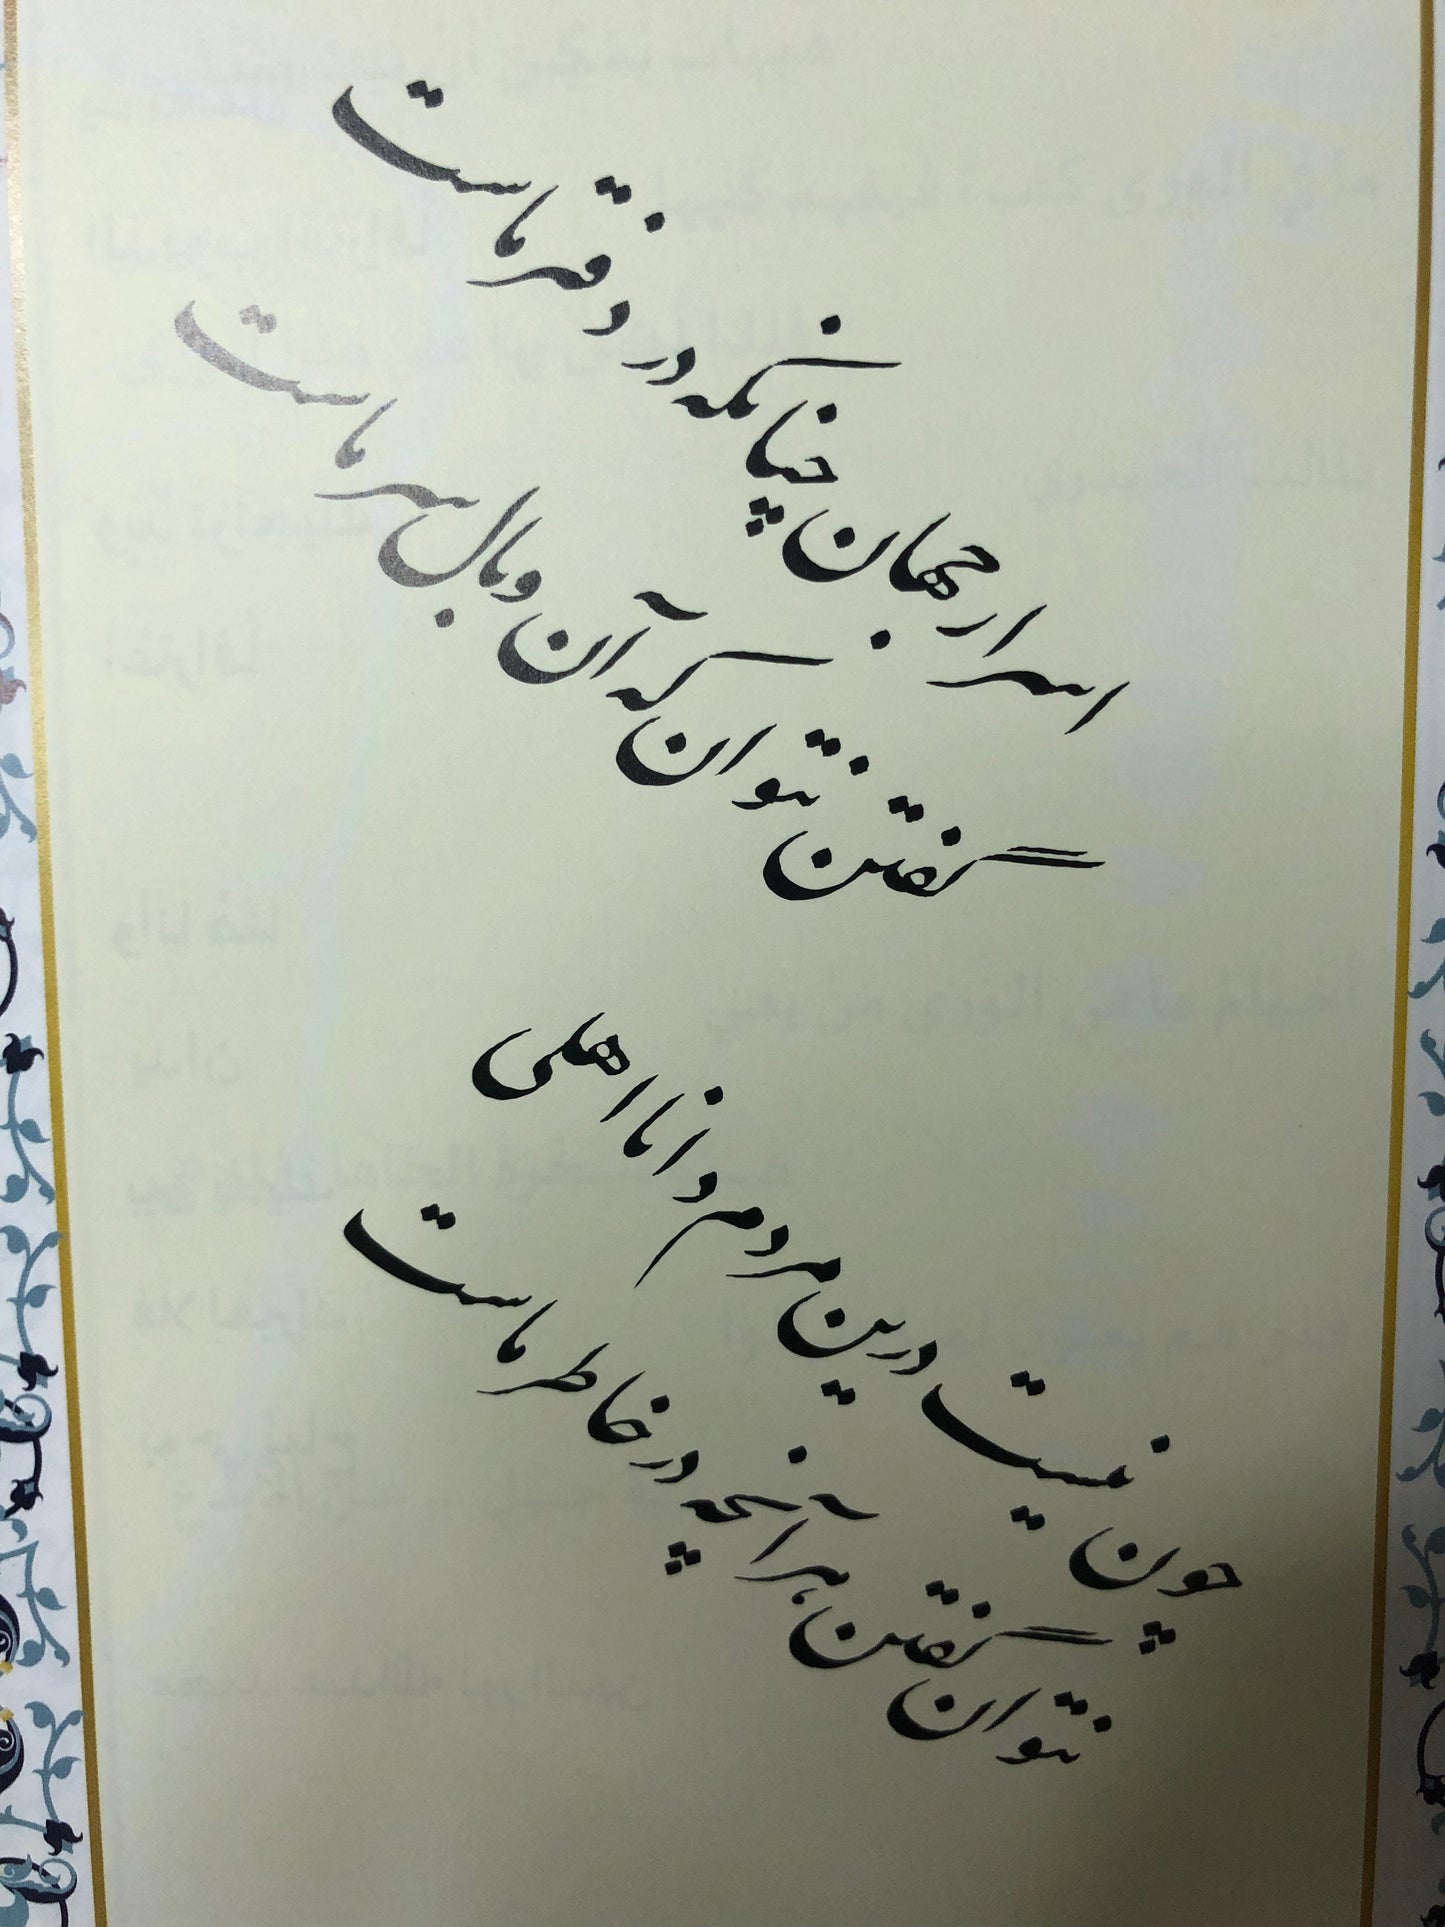 اسرار جهان چنانکه در دفتر ماست
گفتن نتوان که آن وبال سر ماست
چون نیست درین مردم دانا اهلی
نتوان گفتن هر آنچه در خاطر ماست